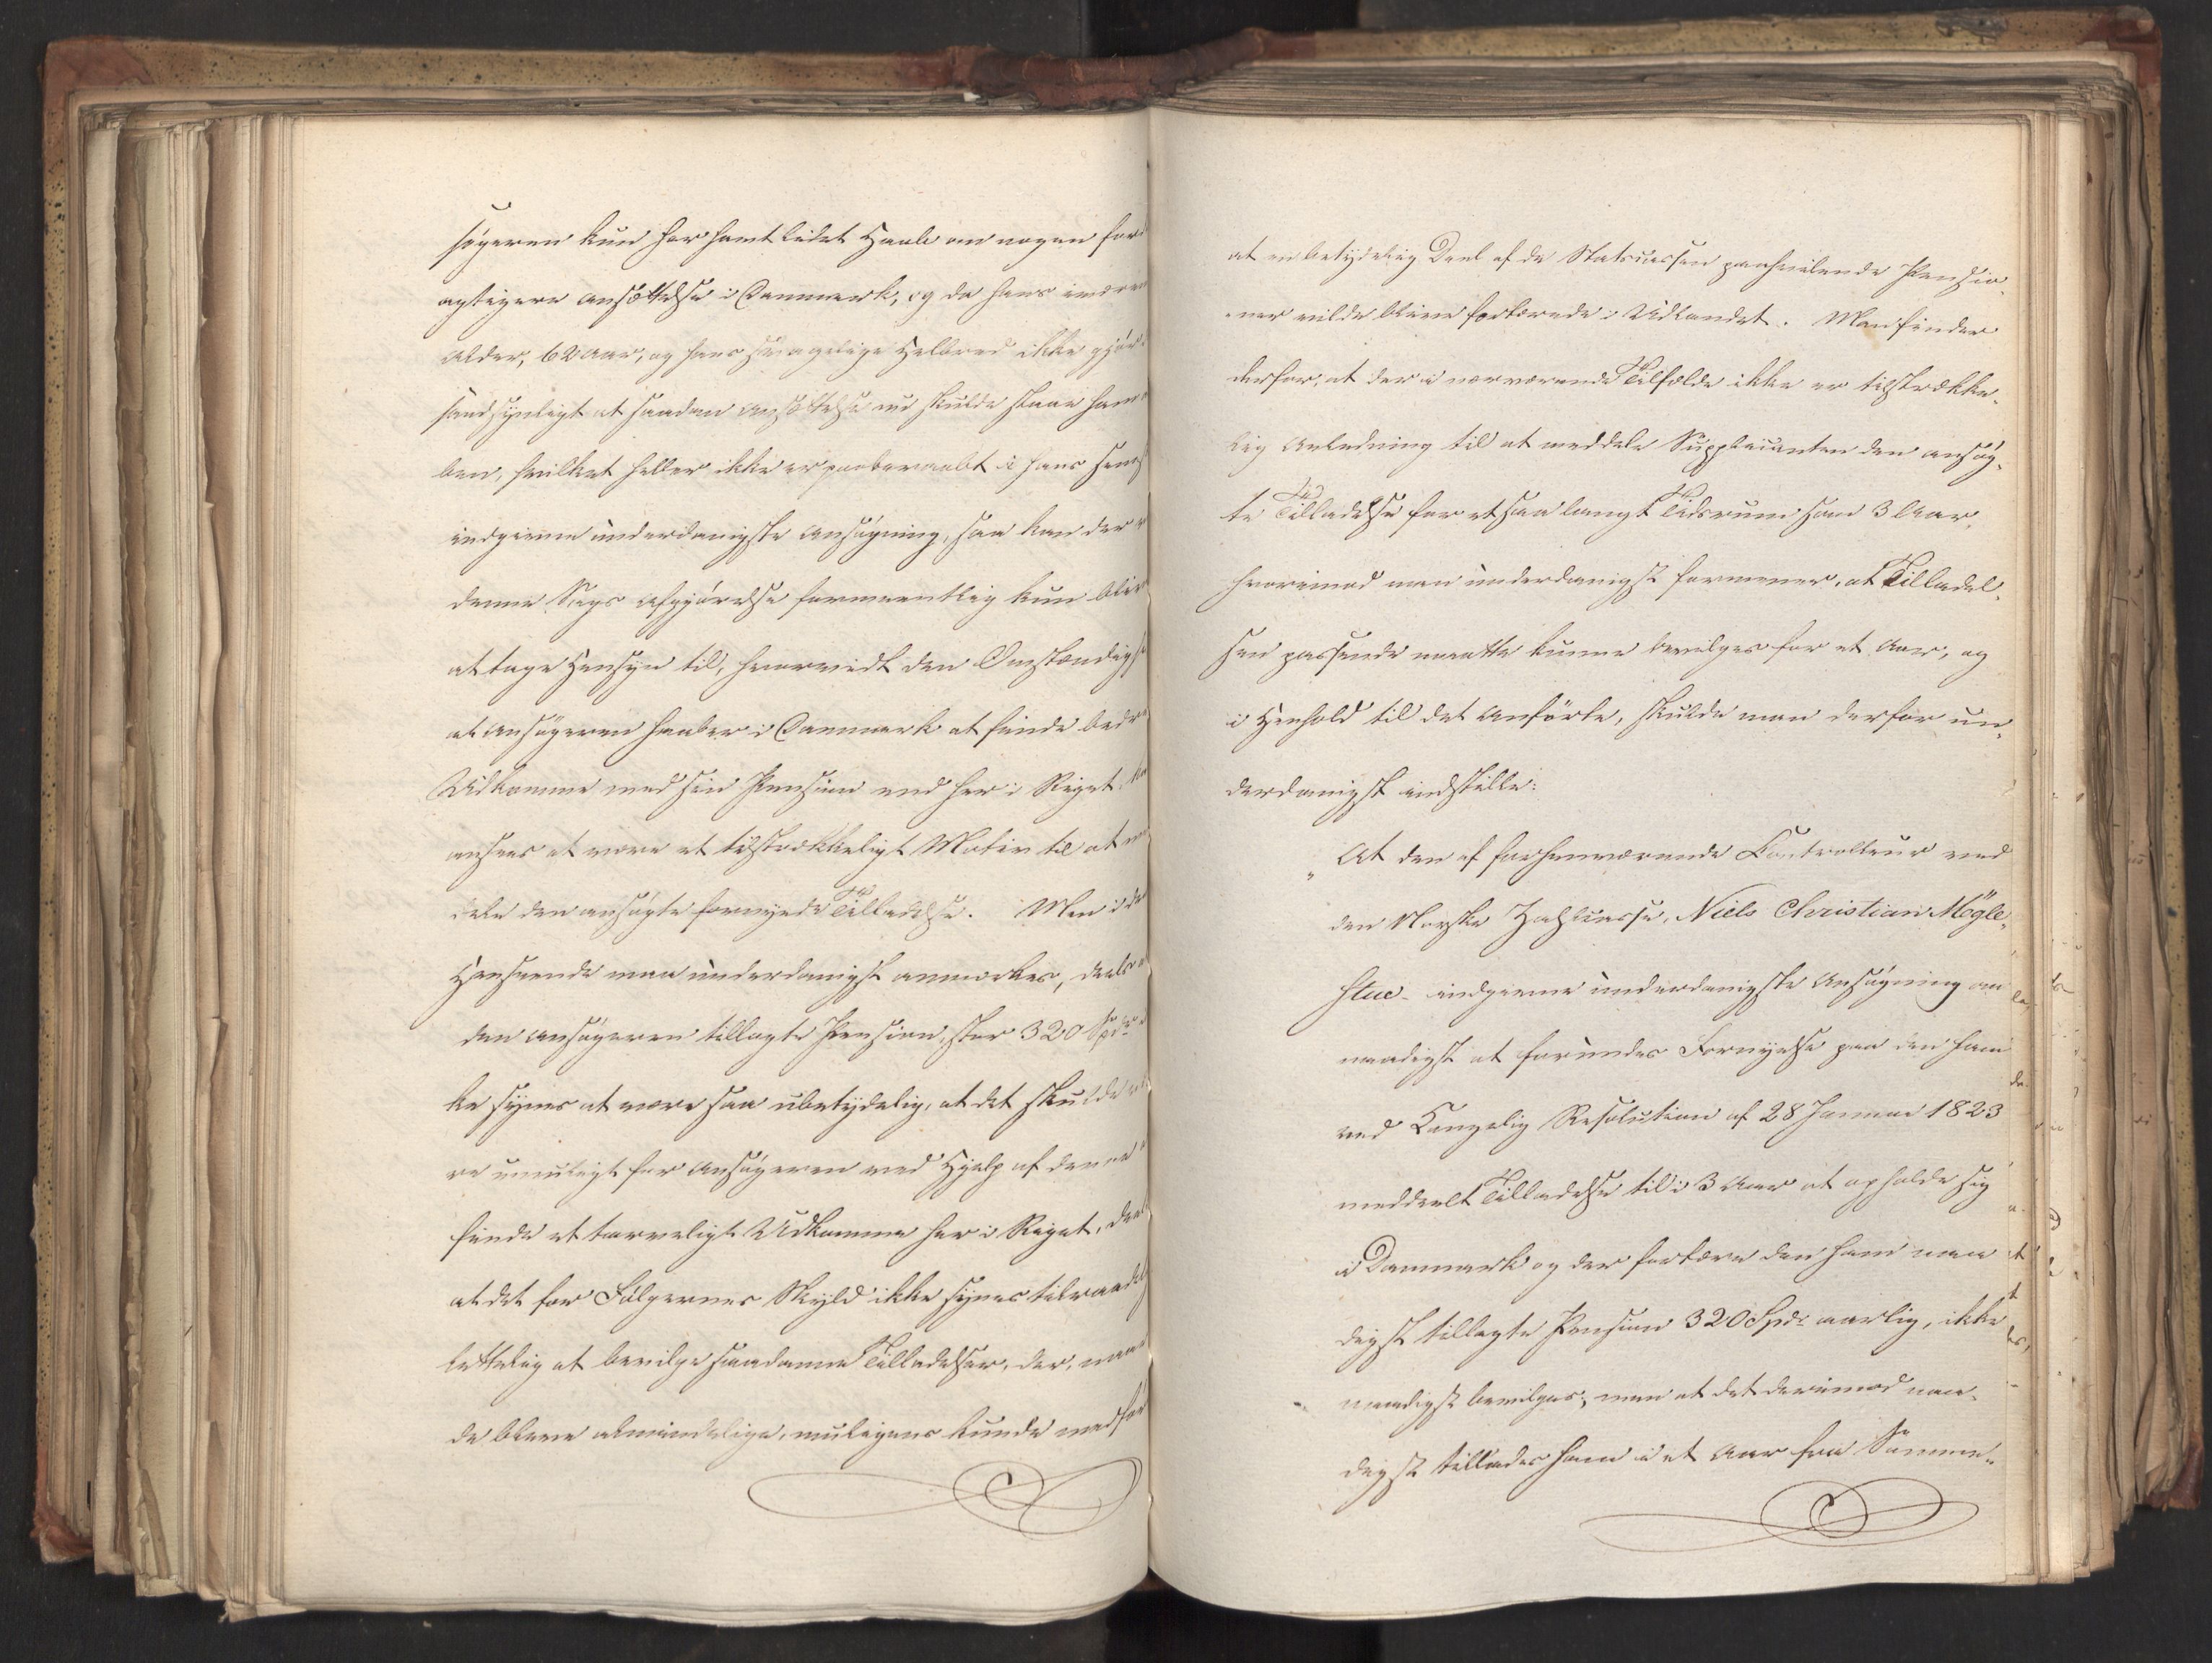 søgeren kun har havt lidet Haab om nogen for¬
agtigere Ansættelse i Danmark, og da hans
Alder, 62 Aar, og hans svagelige Helbred ikke gjør
sandsynligt at saadan Ansættelse nu skulde
hvilket heller ikke er paaberaabt i hans
indgivne underdanigste Ansøgning, saa kan der
denne Sags Afgjørelse formeentlig kun blive
at tage Hensyn til, hvorvidt den Omstændigh
at Ansøgeren haaber i Danmark at finde bedre
Udkomme med sin Pension end her i Riget kan
ansees at være et tilstrækkeligt Motiv til at
dele den ansøgte fornyede Tilladelse. Men i
Henseende maa underdanigst anmærkes, deels
den Ansøgeren tillagte Pension, stor 320 Spdr
ke synes at være saa ubetydelig, at det skulde
re umuligt for Ansøgeren ved Hjelp af denne
finde et tarveligt Udkomme her i Riget, deels
at det for Følgernes Skyld ikke synes tilraadel
lettelig at bevilge saadanne Tilladelser, der, naar
de bleve almindelige, muligens kunde medføre
at en betydelig Deel af de Statscassen paahvilende Pensio¬
ner vilde blive fortærede i Udlandet. Man finder
derfor, at der i nærværende Tilfælde ikke er tilstrække¬
lig Anledning til at meddele Supplicanten den ansøg¬
te Tilladelse for et saa langt Tidsrum som 3 Aar,
hvorimod man underdanigst formener, at Tilladel¬
sen passende maatte kunne bevilges for et Aar, og
i Henhold til det Anførte, skulde man derfor un¬
derdanigst indstille:
„At den af forhenværende Controlleur ved
den Norske Zahlcasse, Niels Christian Mögle¬
stue indgivne underdanigste Ansøgning om
naadigst at forundes Fornyelse paa den ham
ved Kongelig Resolution af 28 Januar 1823
meddeelt Tilladelse til i 3 Aar at opholde sig
i Danmark og der fortære den ham naa
digst tillagte Pension 320 Spdr aarlig, ikke
naadigst bevilges; men at det derimod naa¬
digst tillades ham i et Aar fra Summe¬